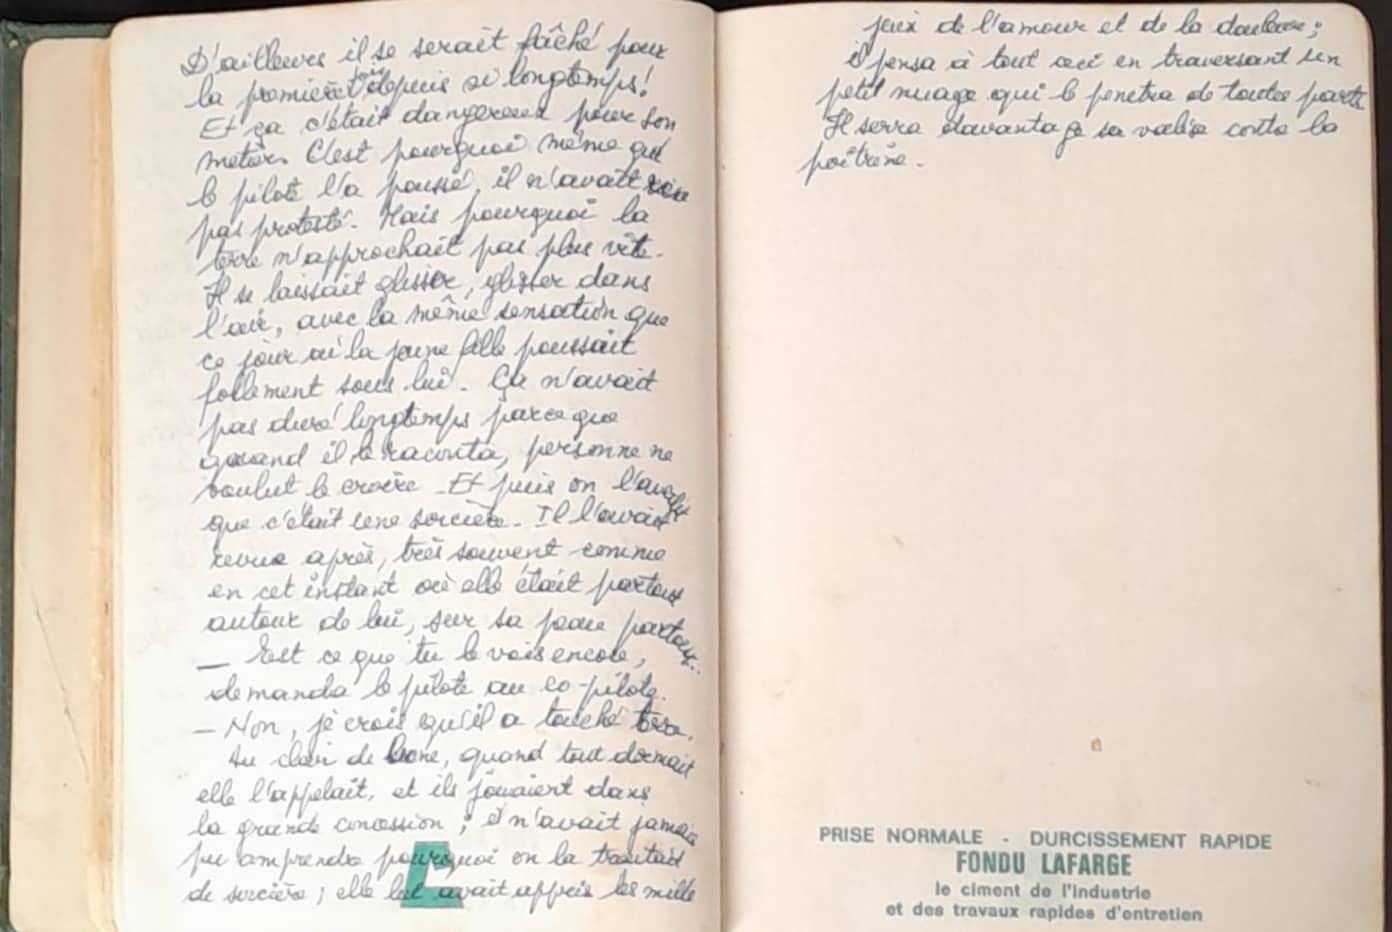 D'ailleurs il se serait fâché pour
la première fois depuis si longtemps !
Et ça c'était dangereux pour son
métier. C'est pourquoi même qd
le pilote l'a poussé, il n'avait
pas protesté. Mais pourquoi la
terre n'approchait pas plus vite.
Il se laissait glisser, glisser dans
l'air, avec la même sensation que
ce jour où la jeune fille poussait
follement sous lui. Ça n'avait
pas duré longtemps parce que
quand il le raconta, personne ne
voulut le croire. Et puis on
que c'était une sorcière. Il l'avait
revue après, très souvent comme
en cet instant où elle était partout
autour de lui, sur sa peau partout..
— Est ce que tu le vois encore,
demanda le pilote au co-pilote.
— Non, je crois qu'il a touché terre.
Au clair de lune, quand tout dormait
elle l'appelait, et ils jouaient dans
la grande concession ; il n'avait jamais
pu comprendre pourquoi on la traitait
de sorcière ; elle lui avait appris les mille
jeux de l'amour et de la douleur ;
il pensa à tout ceci en traversant un
petit nuage qui le penetra de toutes parts
Il serra davantage sa valise contre la
poitrine.
PRISE NORMALE - DURCISSEMENT RAPIDE
FONDU LAFARGE
le ciment de l'industrie
et des travaux rapides d'entretien